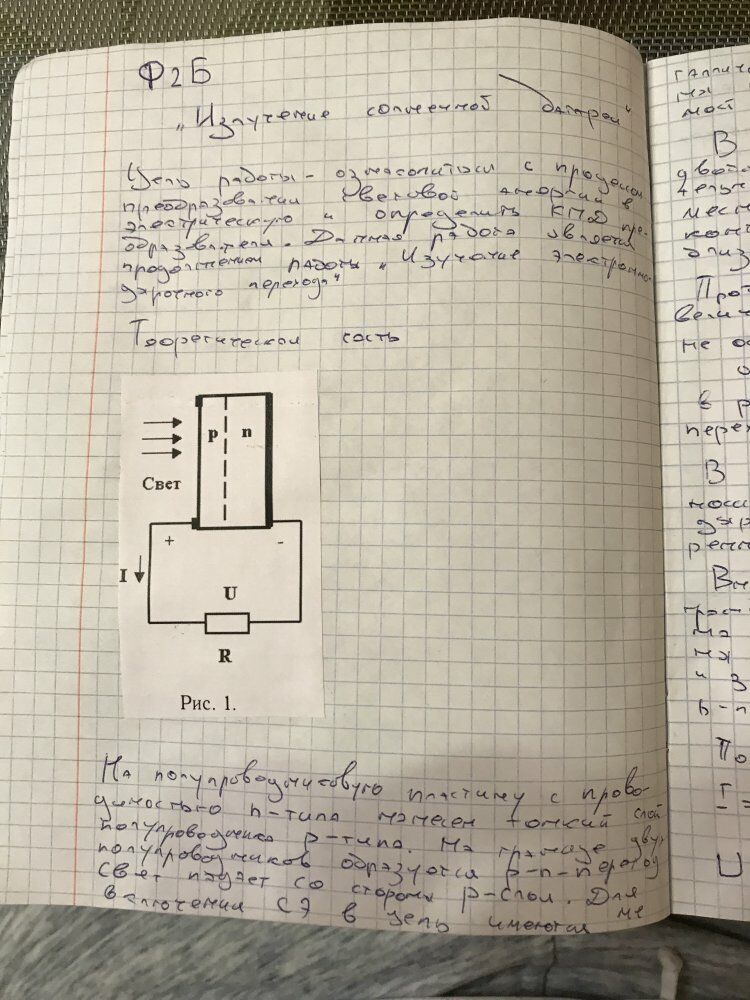 Ф2Б
"Излучение солнечной батареи"
Цель работы - ознакомиться с процессом
преобразования световой энергии в
электрическую и определить КПД пре-
образователя. Данная работа является
продолжением работы "Изучение электронно-
дырочного перехода"
Теоретическая часть
p n
Свет
+ -
I
U
R
Рис. 1.
На полупроводниковую пластину с прово-
димостью n-типа нанесен тонкий слой
полупроводника p-типа. На границе двух
полупроводников образуется p-n-переход
Свет падает со стороны p-слоя. Для
включения СЭ в цепь имеются ме
мост
В
не
в р
перех
В
По
I =
U